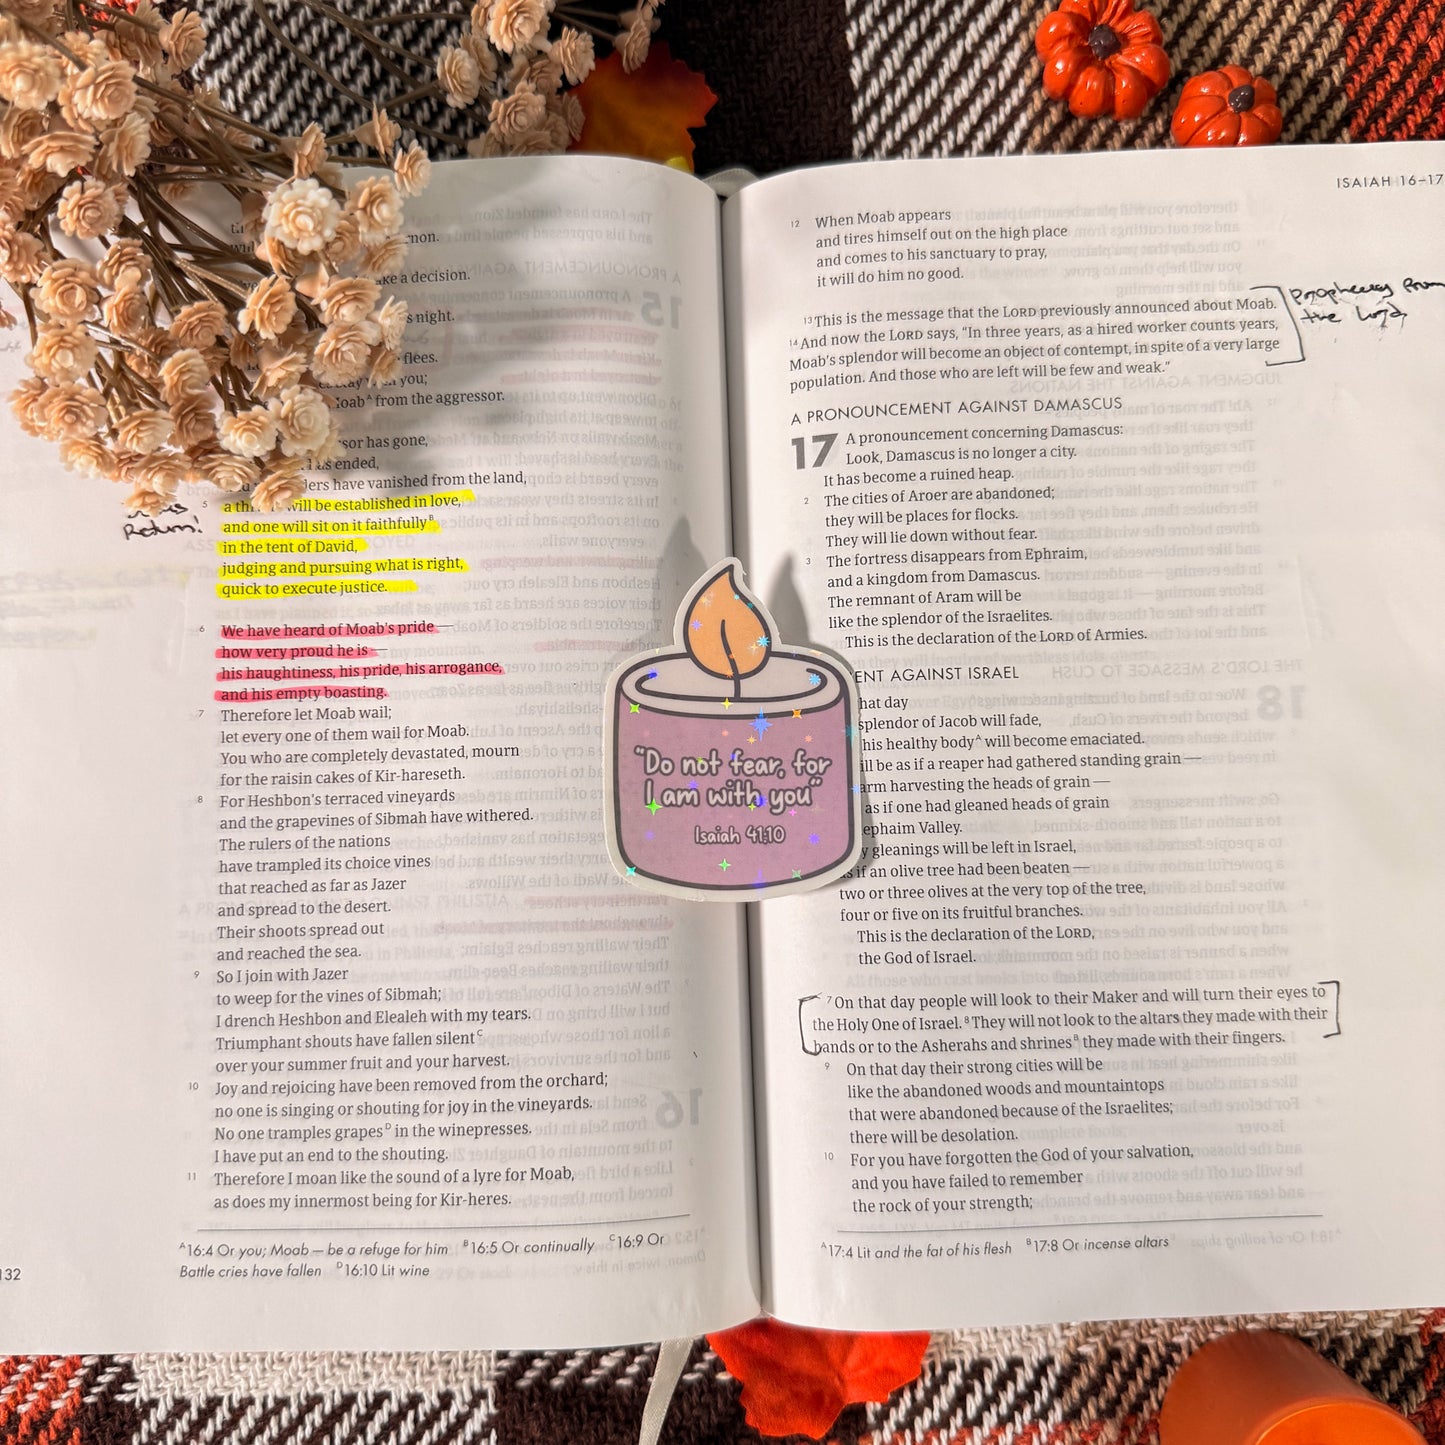 rnon.
ke a decision.
s night.
flees.
you;
Moabᴬ from the aggressor.
sor has gone,
has ended,
ders have vanished from the land,
5 a th will be established in love,
and one will sit on it faithfullyᴮ
in the tent of David,
judging and pursuing what is right,
quick to execute justice.
Return!
6 We have heard of Moab's pride —
how very proud he is —
his haughtiness, his pride, his arrogance,
and his empty boasting.
7 Therefore let Moab wail;
let every one of them wail for Moab.
You who are completely devastated, mourn
for the raisin cakes of Kir-hareseth.
8 For Heshbon's terraced vineyards
and the grapevines of Sibmah have withered.
The rulers of the nations
have trampled its choice vines
that reached as far as Jazer
and spread to the desert.
Their shoots spread out
and reached the sea.
9 So I join with Jazer
to weep for the vines of Sibmah;
I drench Heshbon and Elealeh with my tears.
Triumphant shouts have fallen silentᶜ
over your summer fruit and your harvest.
10 Joy and rejoicing have been removed from the orchard;
no one is singing or shouting for joy in the vineyards.
No one tramples grapesᴰ in the winepresses.
I have put an end to the shouting.
11 Therefore I moan like the sound of a lyre for Moab,
as does my innermost being for Kir-heres.
ᴬ16:4 Or you; Moab — be a refuge for him ᴮ16:5 Or continually ᶜ16:9 Or
Battle cries have fallen ᴰ16:10 Lit wine
132
"Do not fear, for
I am with you"
Isaiah 41:10
ISAIAH 16–17
12 When Moab appears
and tires himself out on the high place
and comes to his sanctuary to pray,
it will do him no good.
13 This is the message that the LORD previously announced about Moab.
14 And now the LORD says, "In three years, as a hired worker counts years,
Moab's splendor will become an object of contempt, in spite of a very large
population. And those who are left will be few and weak."
Prophecy from
the Lord
A PRONOUNCEMENT AGAINST DAMASCUS
17 A pronouncement concerning Damascus:
Look, Damascus is no longer a city.
It has become a ruined heap.
2 The cities of Aroer are abandoned;
they will be places for flocks.
They will lie down without fear.
3 The fortress disappears from Ephraim,
and a kingdom from Damascus.
The remnant of Aram will be
like the splendor of the Israelites.
This is the declaration of the LORD of Armies.
ENT AGAINST ISRAEL
hat day
splendor of Jacob will fade,
his healthy bodyᴬ will become emaciated.
ill be as if a reaper had gathered standing grain —
arm harvesting the heads of grain —
as if one had gleaned heads of grain
ephaim Valley.
y gleanings will be left in Israel,
as if an olive tree had been beaten —
two or three olives at the very top of the tree,
four or five on its fruitful branches.
This is the declaration of the LORD,
the God of Israel.
7 On that day people will look to their Maker and will turn their eyes to
the Holy One of Israel. 8 They will not look to the altars they made with their
hands or to the Asherahs and shrinesᴮ they made with their fingers.
9 On that day their strong cities will be
like the abandoned woods and mountaintops
that were abandoned because of the Israelites;
there will be desolation.
10 For you have forgotten the God of your salvation,
and you have failed to remember
the rock of your strength;
ᴬ17:4 Lit and the fat of his flesh ᴮ17:8 Or incense altars